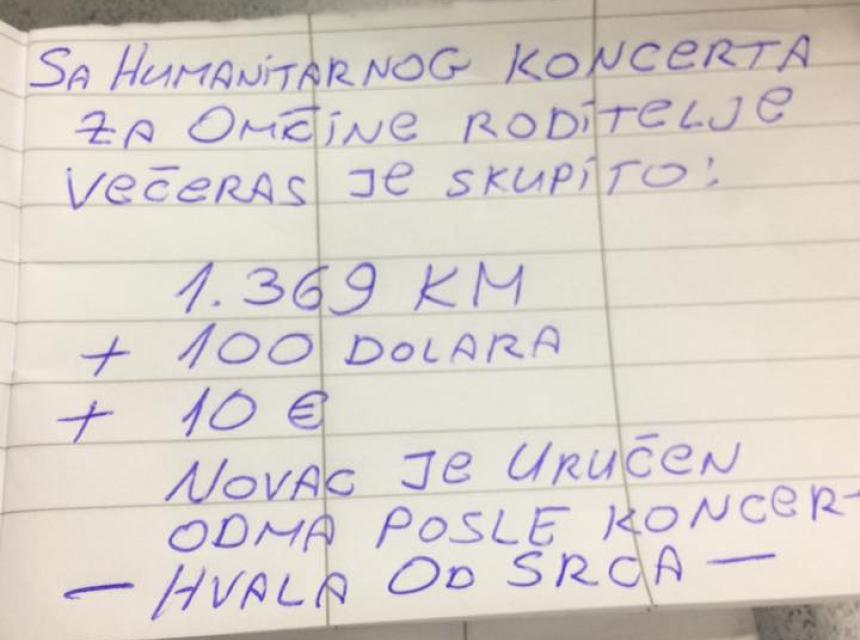 SA HUMANITARNOG KONCERTA
ZA OMČINE RODITELJE
VEČERAS JE SKUPITO:
1.369 KM
+ 100 DOLARA
+ 10 €
NOVAC JE URUČEN
ODMA POSLE KONCER-
- HVALA OD SRCA -